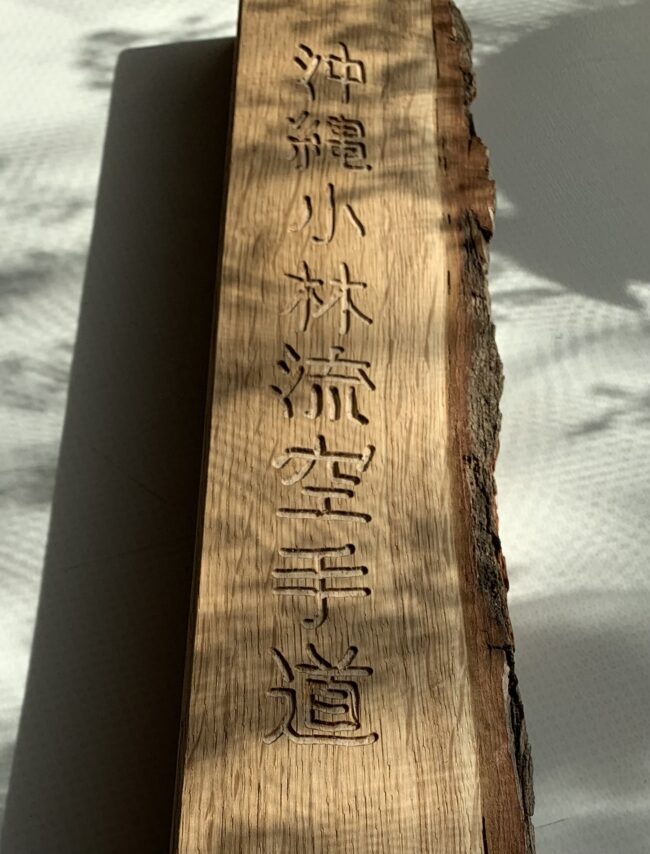 沖縄小林流空手道